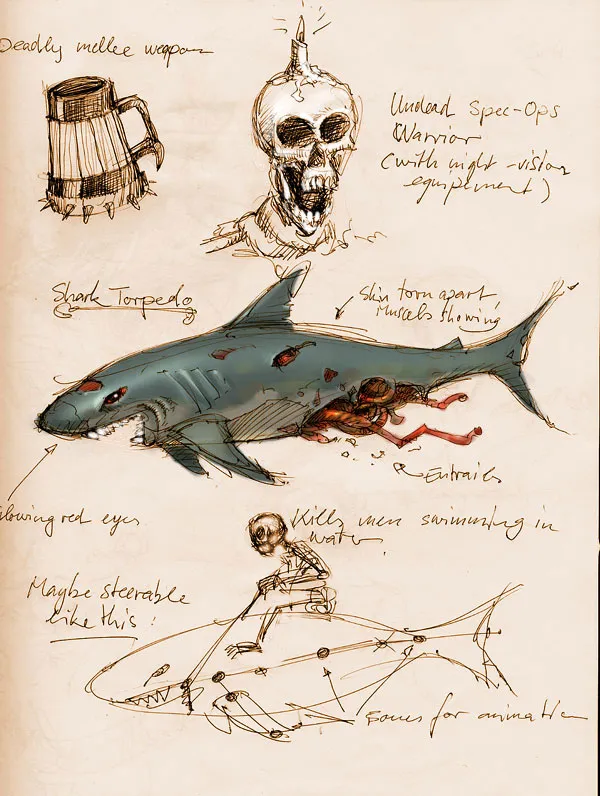 Deadly mellee weapon
Undead Spec-Ops
Warrior
(with night-vision
equipement)
Shark Torpedo
Skin torn apart,
Muscels showing
Entrails
Glowing red eyes
Kills men swimming in
water
Maybe steerable
like this:
Bones for animation